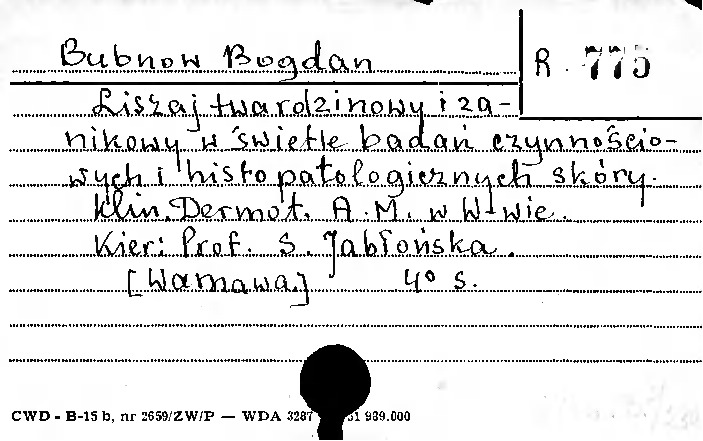 Bubnow Bogdan
R. 775
Liszaj twardzinowy i za-
nikowy w świetle badań czynnościo-
wych i histopatologicznych skóry.
Klin. Dermat. A.M. w W-wie.
Kier: Prof. S. Jabłońska.
[Warszawa] 4° s.
CWD - B-15 b, nr 2659/ZW/P — WDA 3287 51 989.000